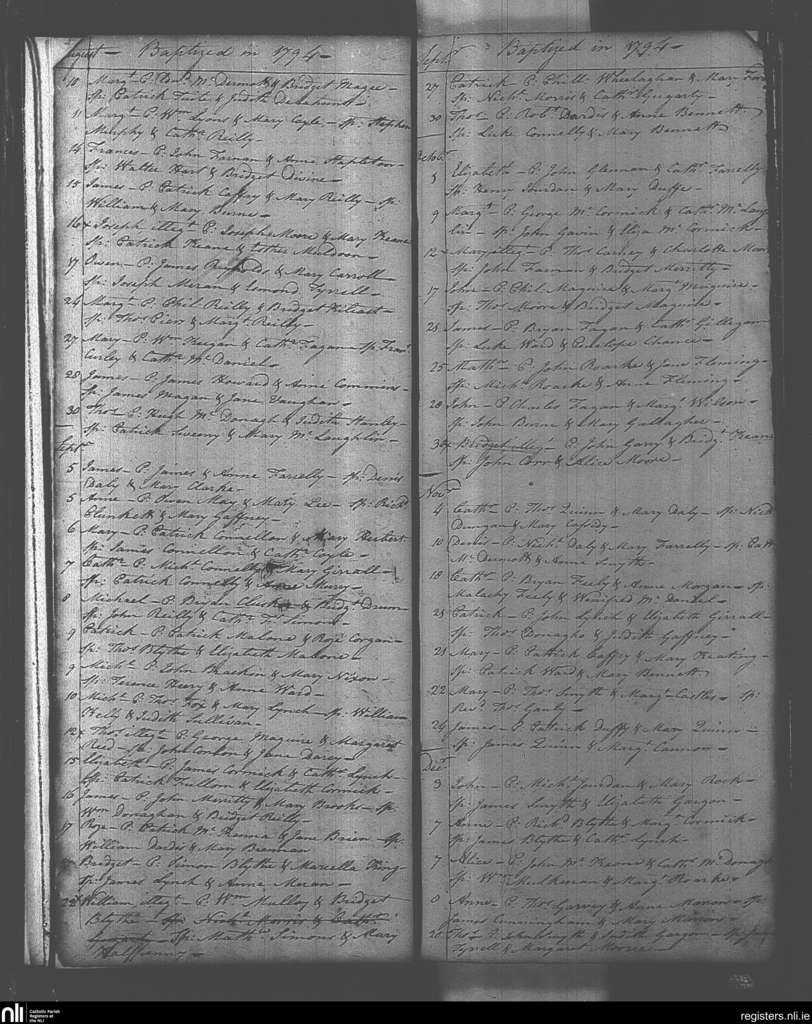 August - Baptized in 1794 -
10 Margt. P. Bar. McDermott & Bridget Magee -
Sp: Patrick Tuite & Judith Delahunt -
11 Margt - P. Wm. Lyons & Mary Coyle - Sp: Stephen
Murphy & Cath. Reilly -
14 Frances - P. John Farnan & Anne Stapleton -
Sp: Walter Hart & Bridget Divine -
15 James - P. Patrick Caffry & Mary Reilly - Sp:
William & Mary Burne -
16 x Joseph illegt. P. Joseph Moore & Mary Keane
Sp: Patrick Keane & Esther Muldoon -
17 Owen - P. James & Mary Carroll
Sp: Joseph Meran & Edmond Tyrrell -
24 Margt. - P. Phil Reilly & Bridget
Sp: Thos. & Margt. Reilly -
27 Mary - P. Wm. Keegan & Cathe. Fagan - Sp: Frans.
Curley & Cathe. McDaniel -
28 James - P. James Howard & Anne Commins -
Sp: James Magan & Jane Vaughan -
30 Thos. P. Hugh McDonagh & Judith Hanley -
Sp: Patrick Sweeny & Mary McLaughlin -
Septr.
5 James - P. James & Anne Farrelly - Sp: Denis
Daly & Mary Clarke -
5 Anne - P. Owen May & Maty Lee - Sp: Richd.
Plunkett & Mary Gaffney -
6 Mary - P. Patrick Connellan & Mary
Sp: James Connellan & Cathe. Coyle -
7 Cathe. - P. Michl. Connelly & Mary Girrall -
Sp: Patrick Connelly & Anne
8 Michael - P. Bryan & Bridgt.
Sp: John Reilly & Cathe. FzSimons -
9 Patrick - P. Patrick Malone & Rose Corgan -
Sp: Thos. Blythe & Elizabeth Malone -
9 Michl. P. John & Mary Nixon -
Sp: Terence & Anne Ward -
10 Michl. P. Thos. Fox & Mary Lynch - Sp: William
Kelly & Judith Sullivan -
12 x Thos. illegt. P. George Maguire & Margaret
Reid - Sp: John Conlon & Jane Darcy -
15 Elizabeth - P. James Cormick & Cathe. Lynch -
Sp: Patrick Fullom & Elizabeth Cormick -
16 James - P. John Merritty & Mary Brooks - Sp:
Wm. Donaghan & Bridget Reilly -
17 Rose - P. Patrick McKeona & Jane Brien - Sp:
William Dardis & Mary Brennan
Bridget - P. Simon Blythe & Marcella King -
Sp: James Lynch & Anne Meran -
William, illegt. - P. Wm. Mulloy & Bridget
Blythe - Sp: Nichs. Morris & Cathe.
Gugarty - Sp: Mathw. Simons & Mary
Halfpenny -
Septr. Baptized in 1794 -
27 Patrick P. Phill. Wheelaghan & Mary
Sp: Nichs. Morris & Cathe. Gugarty -
30 Thos. P. Robt. Dardis & Anne Bennett
Sp: Luke Connelly & Mary Bennett
Octobr.
5 Elizabeth - P. John Glennan & Cathe. Farrelly
Sp: Henry Jourdan & Mary Duffe -
9 Margt. - P. George McCormick & Cathe.
Sp: John Gavin & Eliza McCormick -
12 x Mary illegt - P. Thos. Carney & Charlotte
Sp: John Farnan & Bridget Merritty -
17 John - P. Phil. Maguire & Margt. Maguire -
Sp: Thos. Moore & Bridget Maguire -
James - P. Bryan Fagan & Cathe. Gilligan
Sp: Luke Ward & Penelope Chance -
25 Mathw. P. John Roarke & Jane Fleming -
Sp: Michl. Roarke & Anne Fleming -
28 John - P. Charles Fagan & Margt. Wilson -
Sp: John Birne & Mary Gallagher -
30 x Bridget illegt. - P. John Gary & Bridgt. Keane
Sp: John Corr & Alice Moore -
Novr.
4 Cathe. - P. Thos. Quinn & Mary Daly - Sp:
Dungan & Mary Cassidy -
10 Denis - P. Nichs. Daly & Mary Farrelly - Sp:
McDermott & Anne Smyth -
18 Cathe. - P. Bryan Feely & Anne Morgan - Sp:
Malachy Feely & Winifred McDaniel -
21 Patrick - P. John Lynch & Elizabeth Girrall -
Sp: Thos. Donagho & Judith Gaffney -
21 Mary - P. Patrick Caffry & Mary Keating -
Sp: Patrick Ward & Mary Bennett
22 Mary - P. Thos. Smyth & Margt. Castles - Sp:
Revd. Thos. Ganly -
26 James - P. Patrick Duffy & Mary Quinn -
Sp: James Quinn & Margt. Cannon -
Decr.
3 John - P. Michl. Jourdan & Mary Rock -
Sp: James Smyth & Elizabeth Gargon -
7 Anne - P. Richd. Blythe & Margt. Cormick -
Sp: James Blythe & Cathe. Lynch -
7 Alice - P. John McKeone & Cathe. McDonagh
Sp: Wm. Mulkeeran & Margt. Roarke -
8 Anne - P. Thos. Garvey & Anne Manon - Sp:
James Cunningham & Mary Manon -
20 Thos. P. John Smyth & Judith Gargon - Sp:
Tyrrell & Margaret Moore -
nli
Catholic Parish
Registers at
the NLI
registers.nli.ie